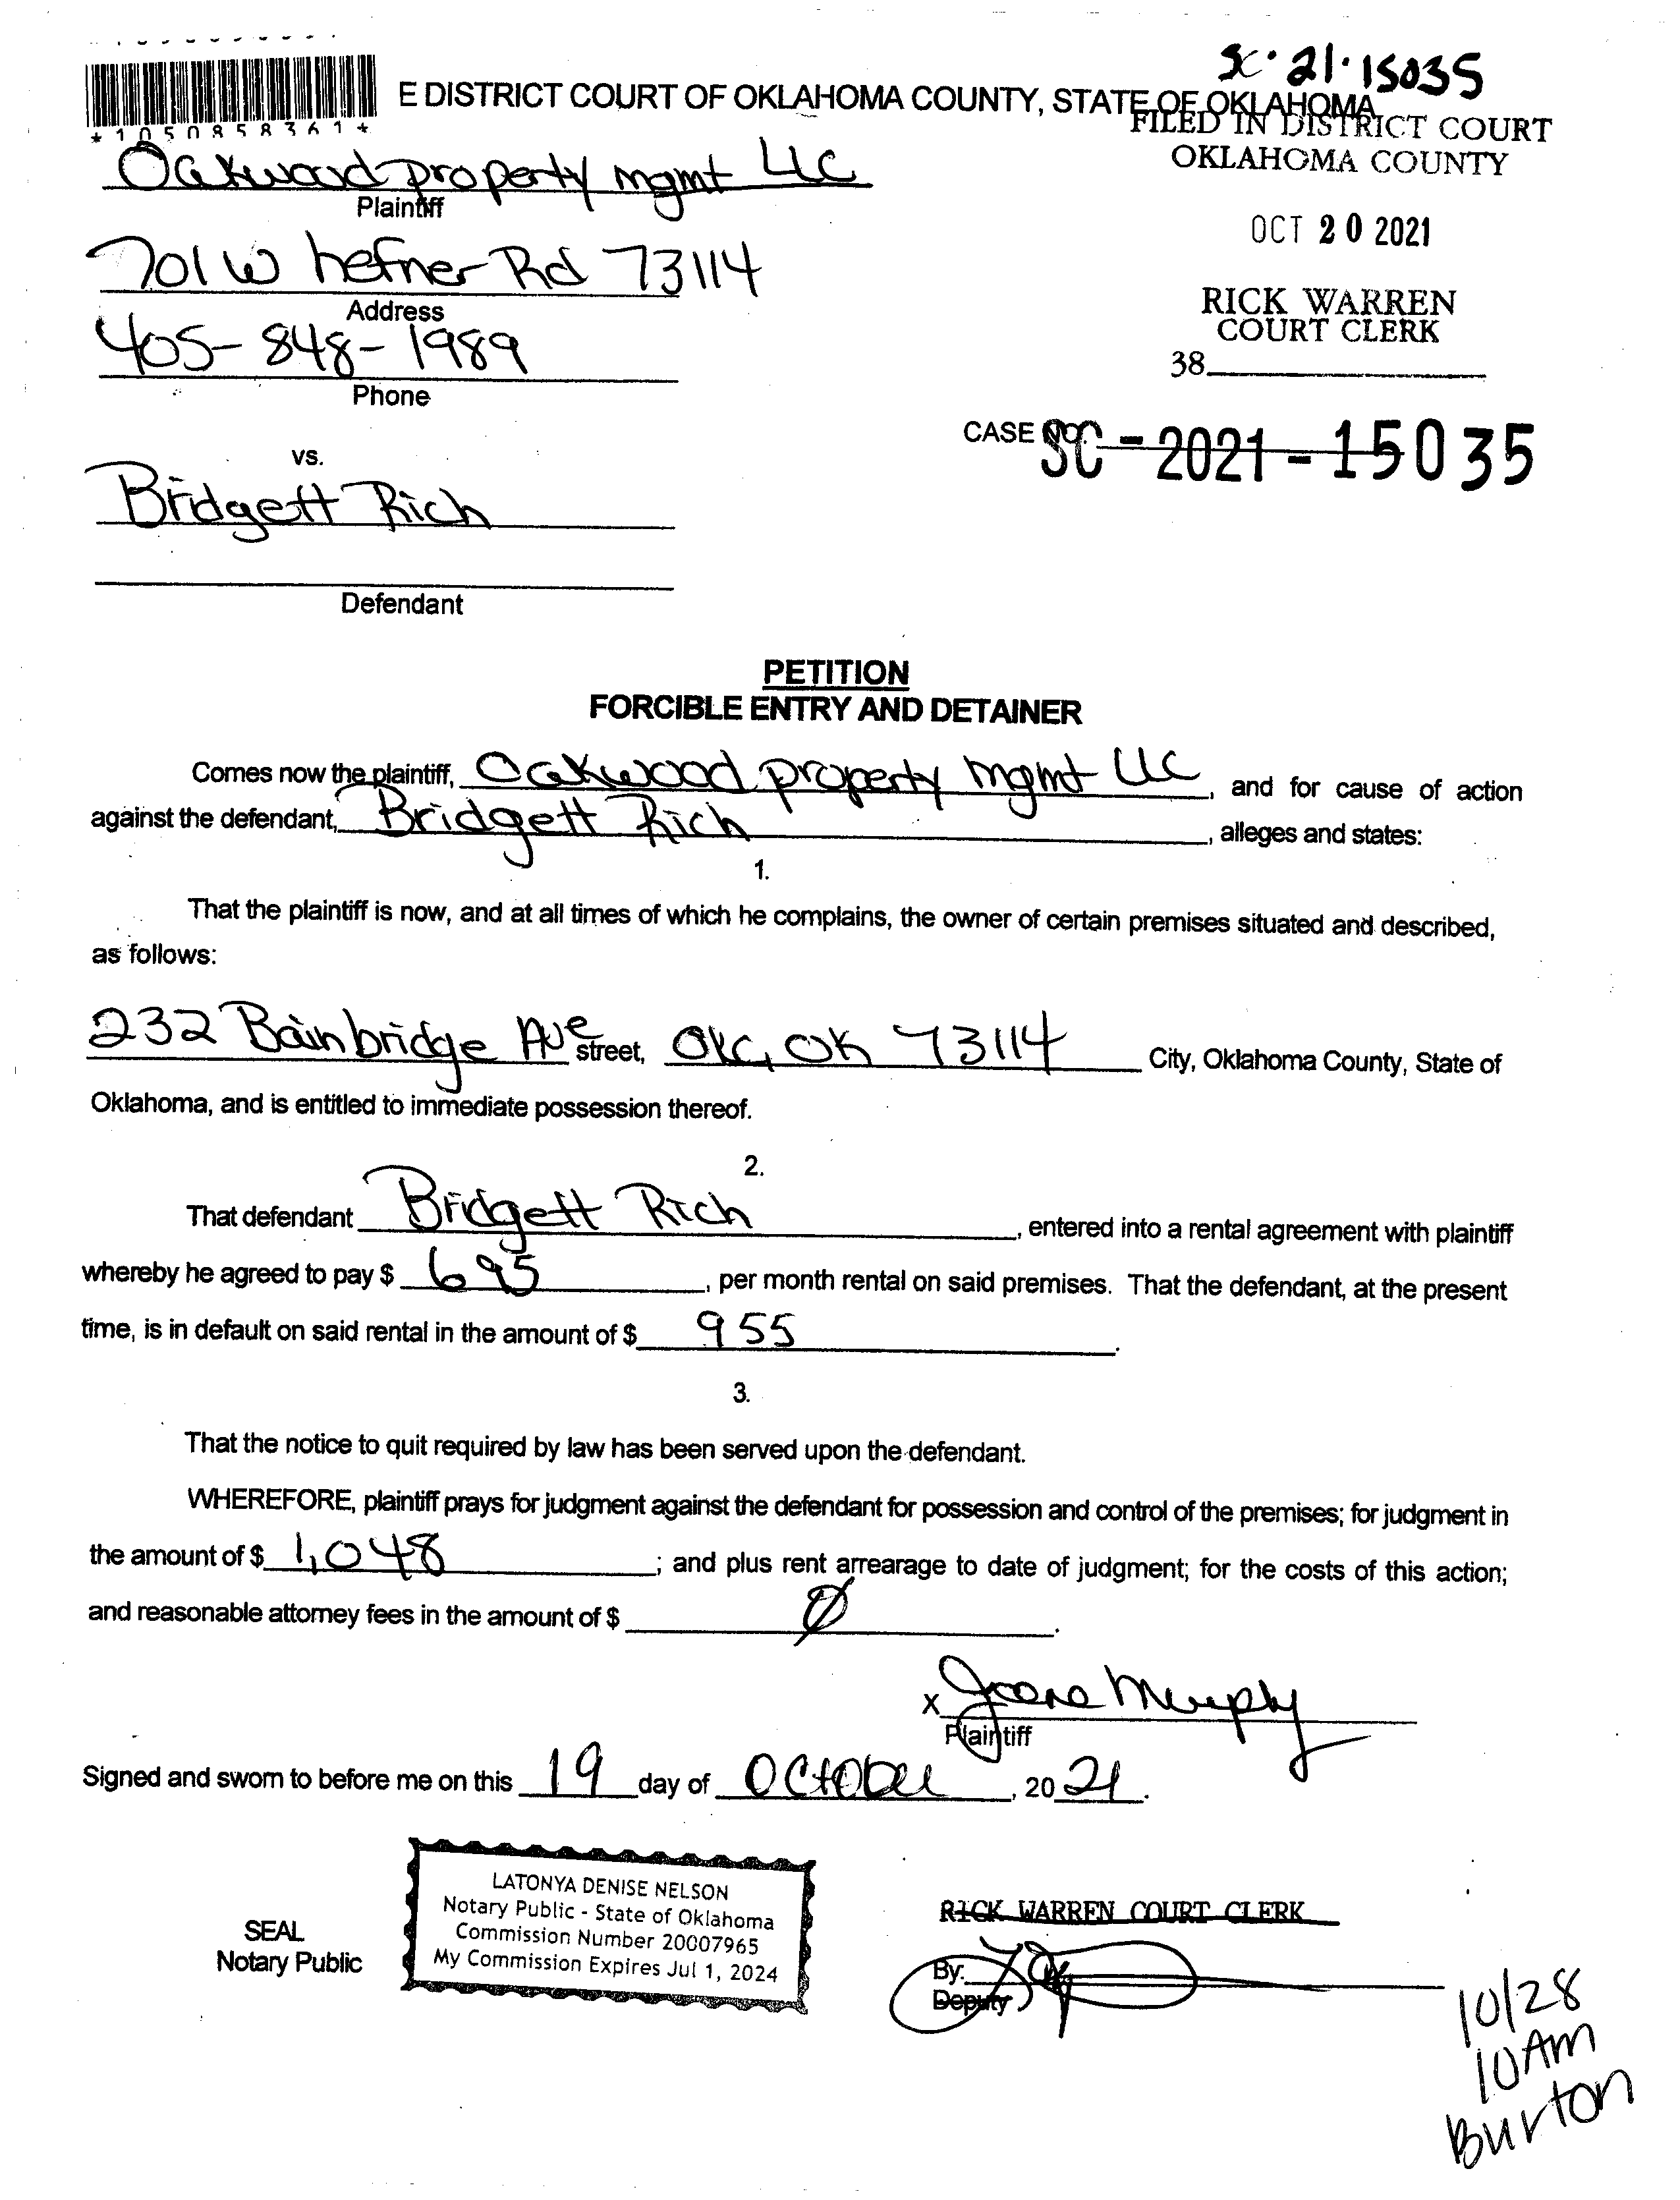 SC·21·15035
E DISTRICT COURT OF OKLAHOMA COUNTY, STATE OF OKLAHOMA
*1050858361*
FILED IN DISTRICT COURT
OKLAHOMA COUNTY
Oakwood property mgmt LLC
Plaintiff
OCT 20 2021
701 W hefner Rd 73114
Address
RICK WARREN
COURT CLERK
405-848-1989
38
Phone
CASE NO.
SC-2021-15035
vs.
Bridgett Rich
Defendant
PETITION
FORCIBLE ENTRY AND DETAINER
Comes now the plaintiff, Oakwood property mgmt LLC, and for cause of action
against the defendant, Bridgett Rich, alleges and states:
1.
That the plaintiff is now, and at all times of which he complains, the owner of certain premises situated and described,
as follows:
232 Bainbridge Ave street, OKC, OK 73114 City, Oklahoma County, State of
Oklahoma, and is entitled to immediate possession thereof.
2.
That defendant Bridgett Rich, entered into a rental agreement with plaintiff
whereby he agreed to pay $ 695, per month rental on said premises. That the defendant, at the present
time, is in default on said rental in the amount of $ 955.
3.
That the notice to quit required by law has been served upon the defendant.
WHEREFORE, plaintiff prays for judgment against the defendant for possession and control of the premises; for judgment in
the amount of $ 1,048; and plus rent arrearage to date of judgment; for the costs of this action;
and reasonable attorney fees in the amount of $ Ø.
X Murphy
Plaintiff
Signed and sworn to before me on this 19 day of October, 2021.
LATONYA DENISE NELSON
Notary Public - State of Oklahoma
Commission Number 20007965
My Commission Expires Jul 1, 2024
SEAL
Notary Public
RICK WARREN COURT CLERK
By:
Deputy
10/28
10AM
Burton